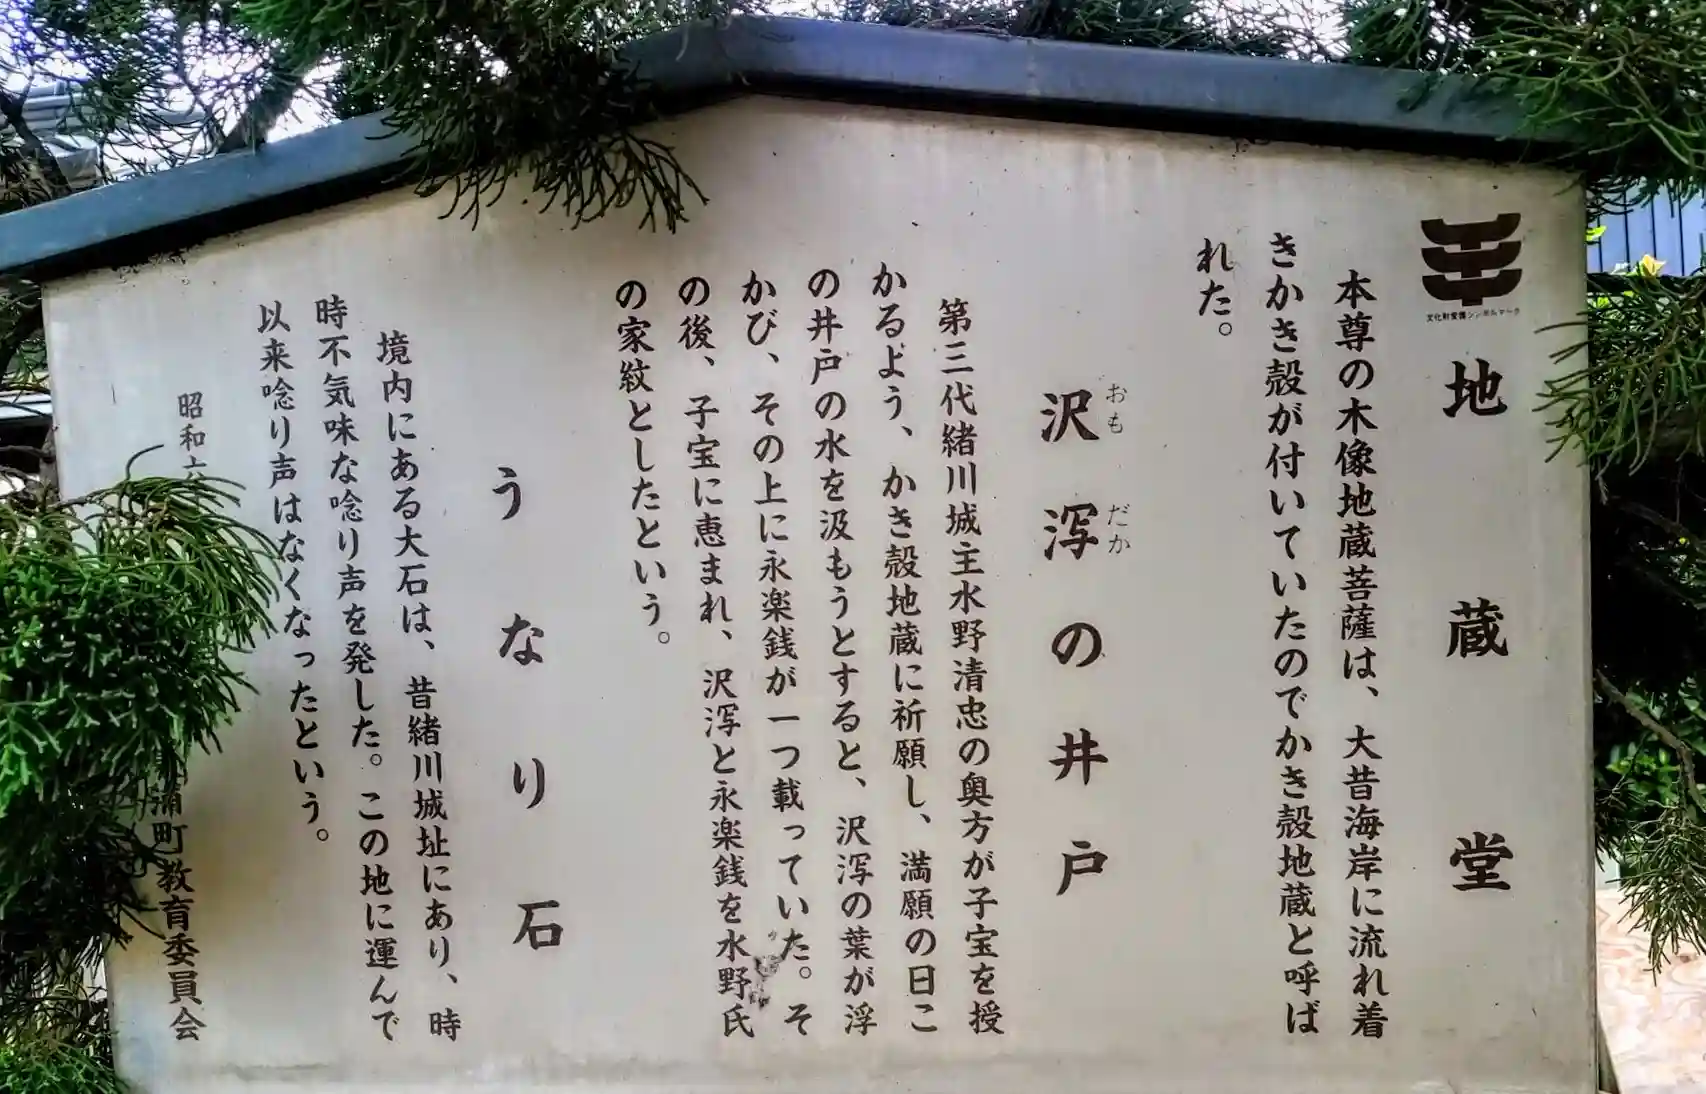 文化財愛護シンボルマーク
地蔵堂
本尊の木像地蔵菩薩は、大昔海岸に流れ着
きかき殻が付いていたのでかき殻地蔵と呼ば
れた。
沢瀉の井戸
おもだか
第三代緒川城主水野清忠の奥方が子宝を授
かるよう、かき殻地蔵に祈願し、満願の日こ
の井戸の水を汲もうとすると、沢瀉の葉が浮
かび、その上に永楽銭が一つ載っていた。そ
の後、子宝に恵まれ、沢瀉と永楽銭を水野氏
の家紋としたという。
うなり石
境内にある大石は、昔緒川城址にあり、時
時不気味な唸り声を発した。この地に運んで
以来唸り声はなくなったという。
昭和六
浦町教育委員会